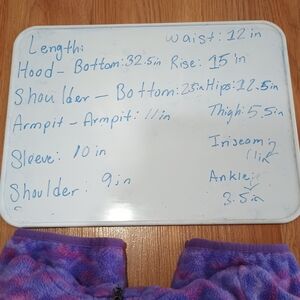 Length:
Waist: 12 in
Hood - Bottom: 32.5in
Rise: 15 in
Shoulder - Bottom: 25in
Hips: 12.5in
Armpit - Armpit: 11in
Thigh: 5.5in
Sleeve: 10 in
Inseam: 11in
Shoulder: 9in
Ankle: 3.5in